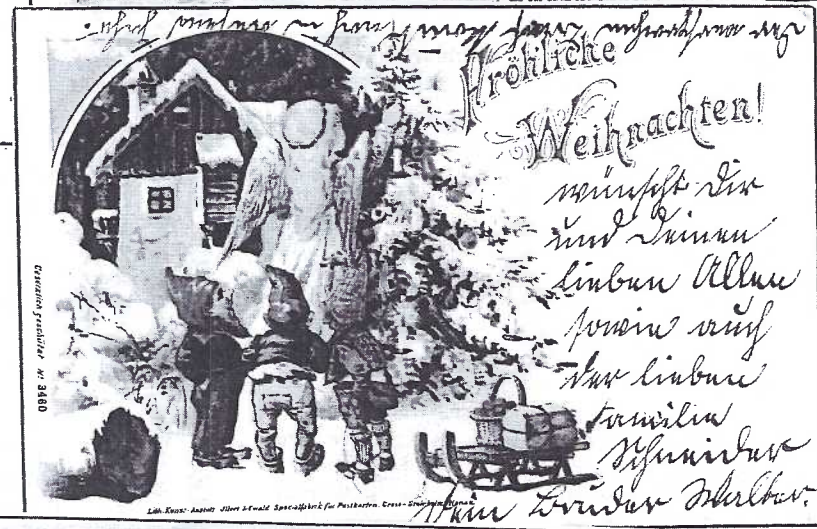 Fröhliche
Weihnachten!
wünscht Dir
und Deinen
lieben Allen
sowie auch
der lieben
Familie
Schneider
Dein Bruder Walter.
Gesetzlich geschützt Nr. 3460
Lith. Kunst-Anstalt Illert & Ewald Specialfabrik für Postkarten. Gross-Steinheim